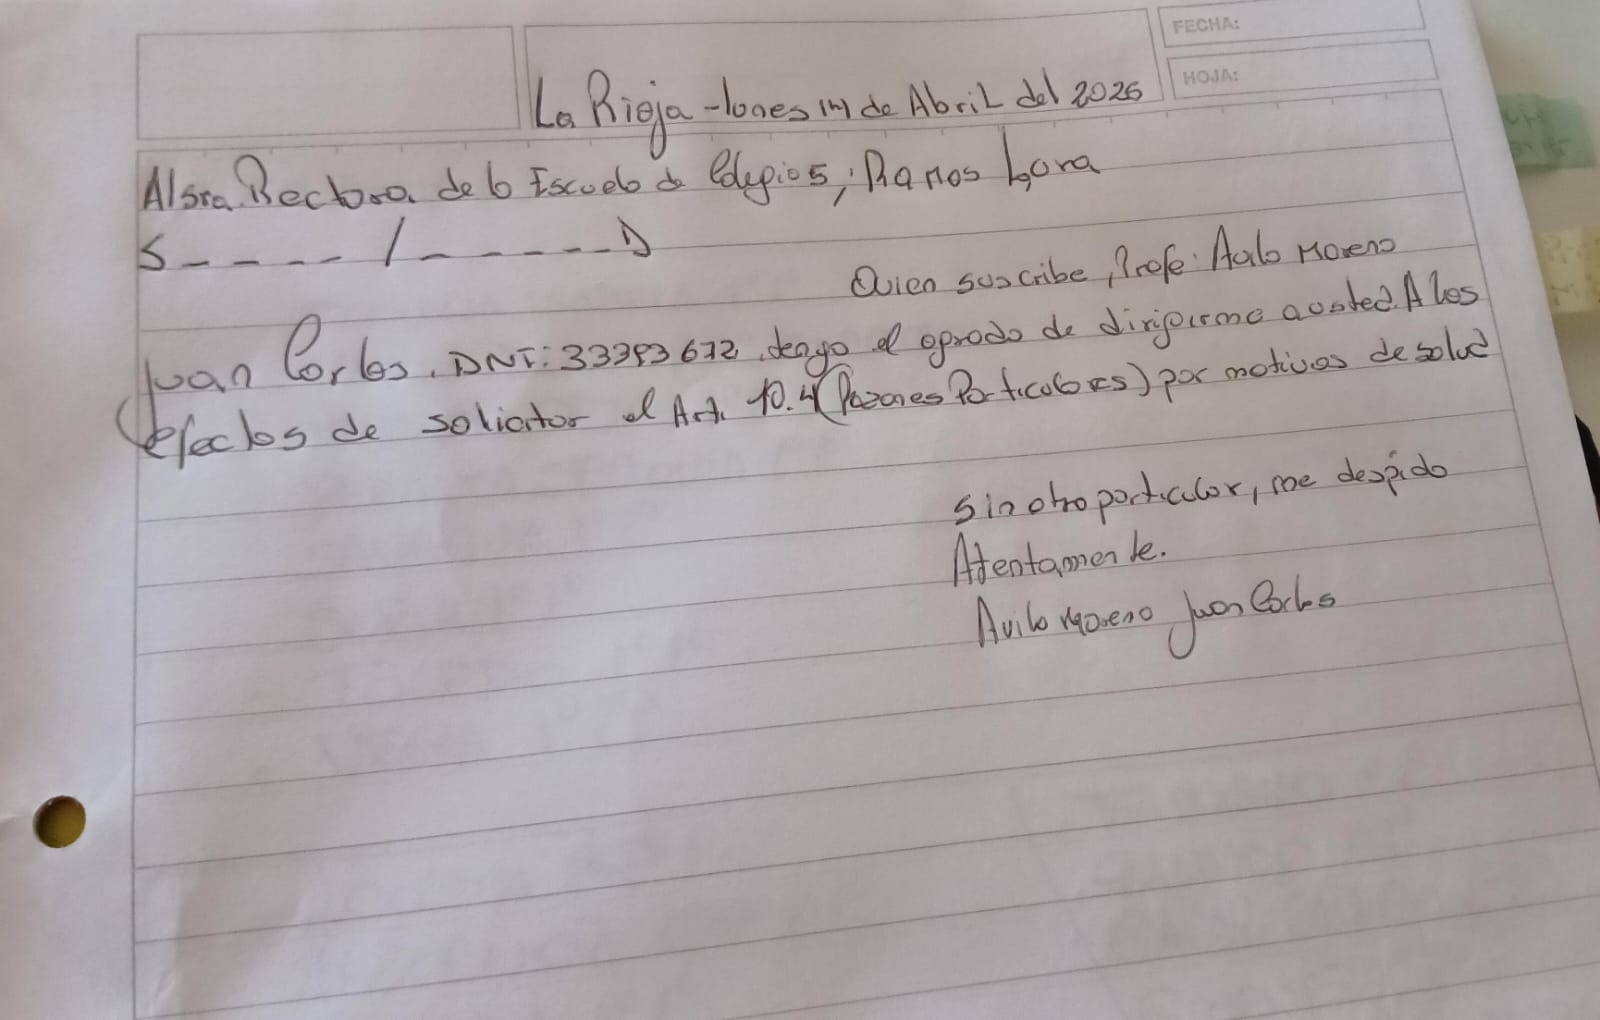 FECHA:
HOJA:
La Rioja - lunes 14 de Abril del 2025
Al Sra. Rectora de la Escuela de Colegio 5, Ramos Lora
S _ _ _ _ / _ _ _ _ _ _ D
Quien suscribe, Profe: Avila Moreno
Juan Carlos. DNI: 33393672, tengo el agrado de dirigirme a usted. A los
efectos de solicitar el Art. 10.4 (Razones Particulares) por motivos de salud
Sin otro particular, me despido
Atentamente.
Avila Moreno Juan Carlos